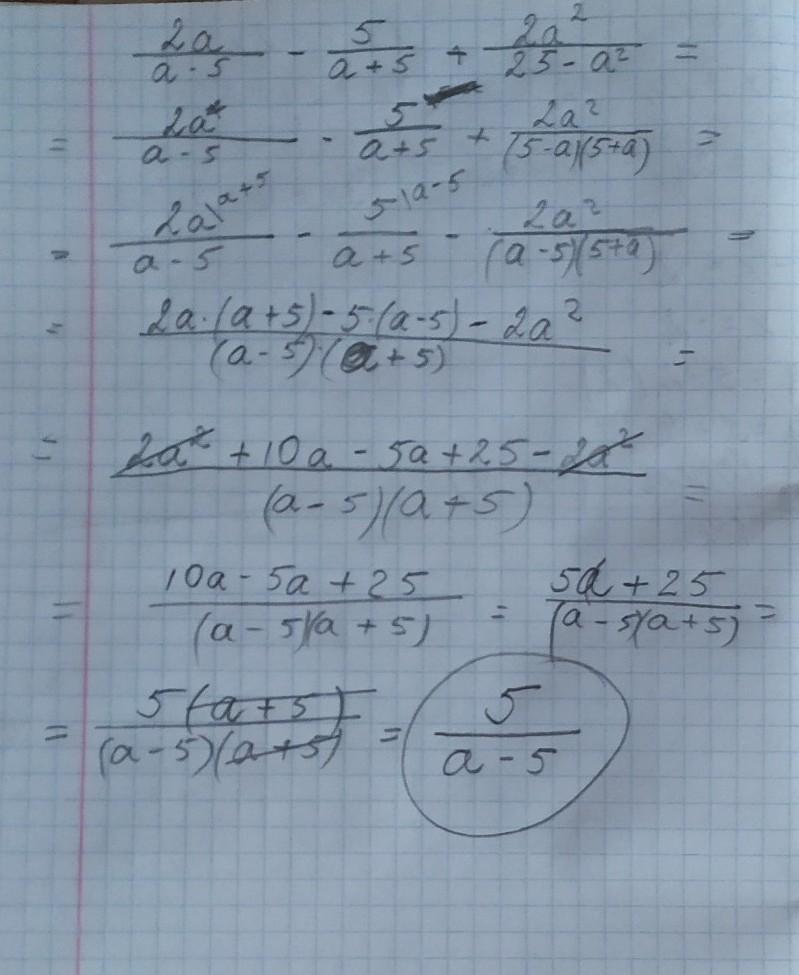 2a/(a-5) - 5/(a+5) + 2a²/(25-a²) =
= 2a/(a-5) - 5/(a+5) + 2a²/((5-a)(5+a)) =
= 2a\a+5/(a-5) - 5\a-5/(a+5) - 2a²/((a-5)(5+a)) =
= (2a·(a+5)-5·(a-5)-2a²)/((a-5)·(a+5)) =
= (2a²+10a-5a+25-2a²)/((a-5)(a+5)) =
= (10a-5a+25)/((a-5)(a+5)) = (5a+25)/((a-5)(a+5)) =
= 5(a+5)/((a-5)(a+5)) = 5/(a-5)